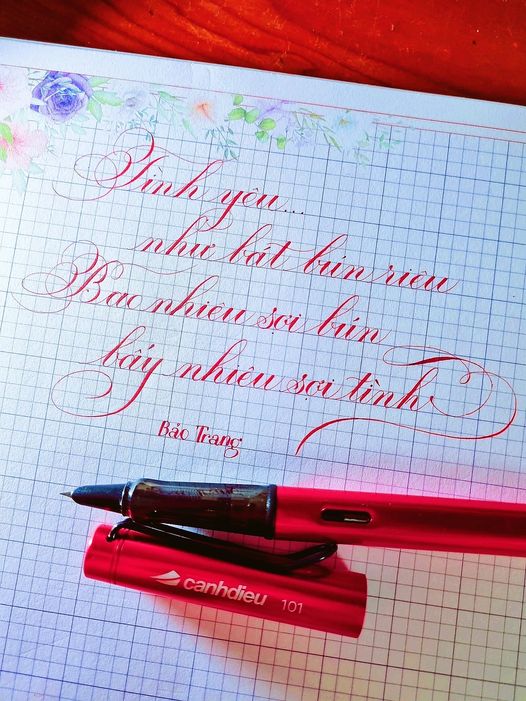 Tình yêu...
như bát bún riêu
Bao nhiêu sợi bún
bấy nhiêu sợi tình
Bảo Trang
canhdieu 101